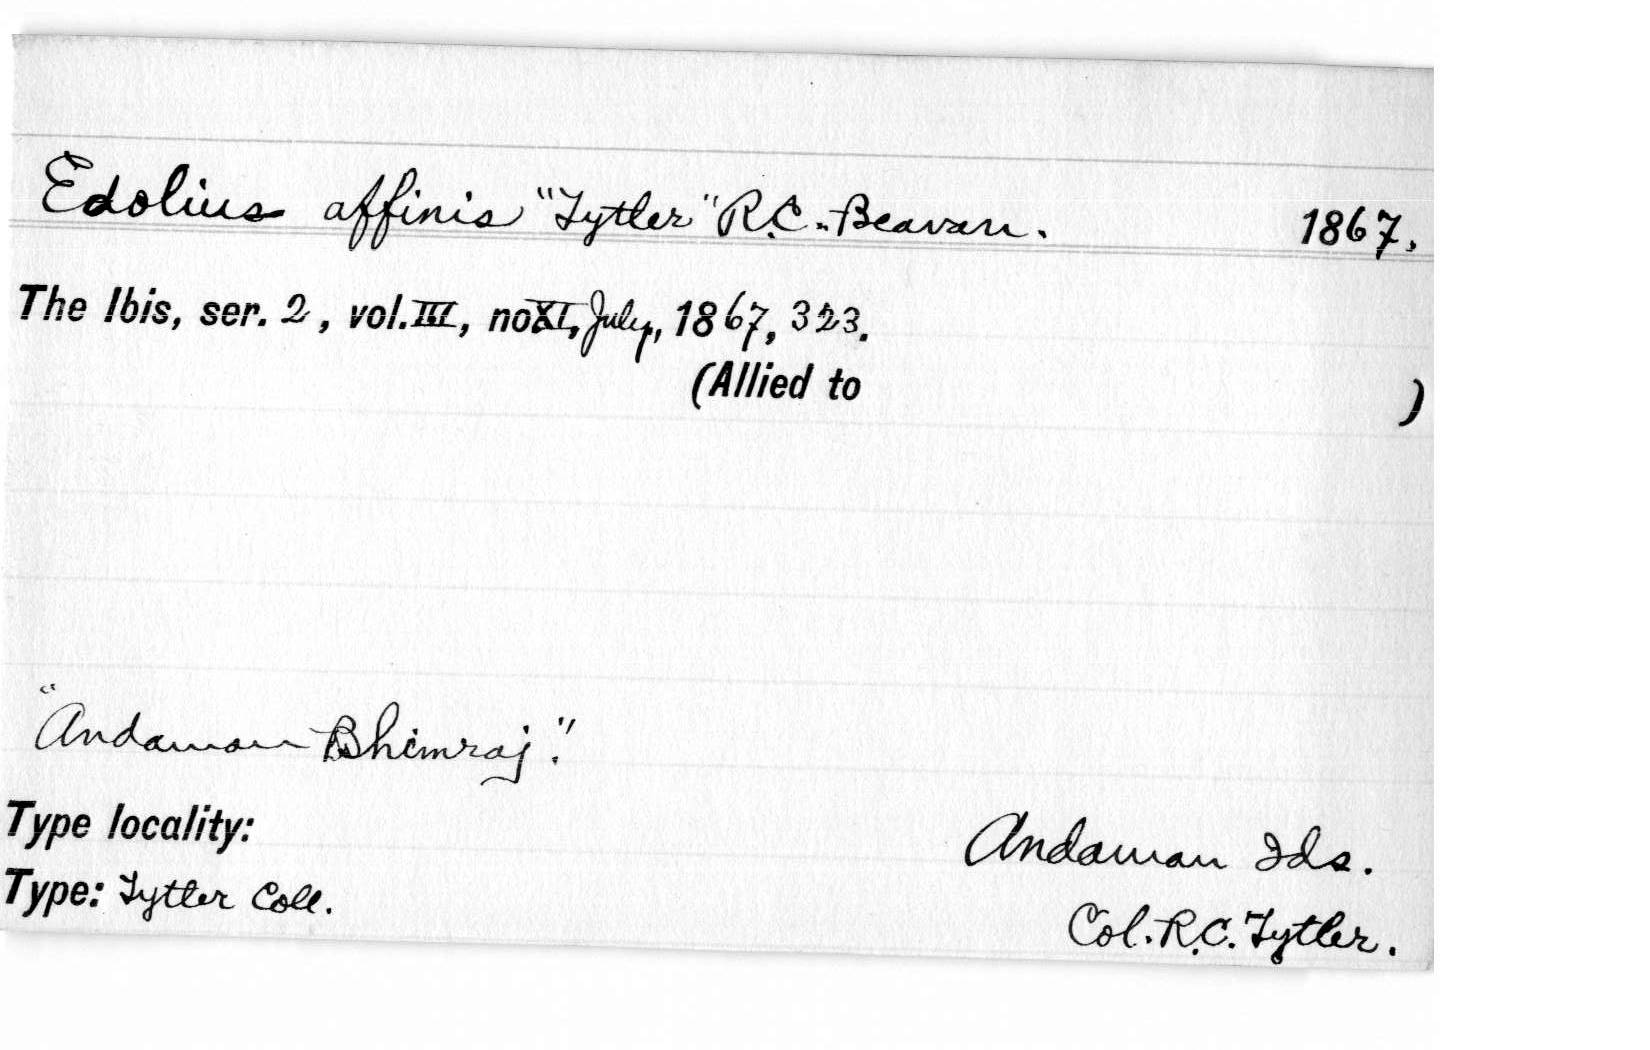 Edolius affinis "Tytler" R.C. Beavan. 1867.
The Ibis, ser. 2, vol. III, no XI, July, 1867, 323.
(Allied to )
"Andaman Bhimraj."
Type locality: Andaman Ids.
Type: Tytler Coll. Col. R.C. Tytler.